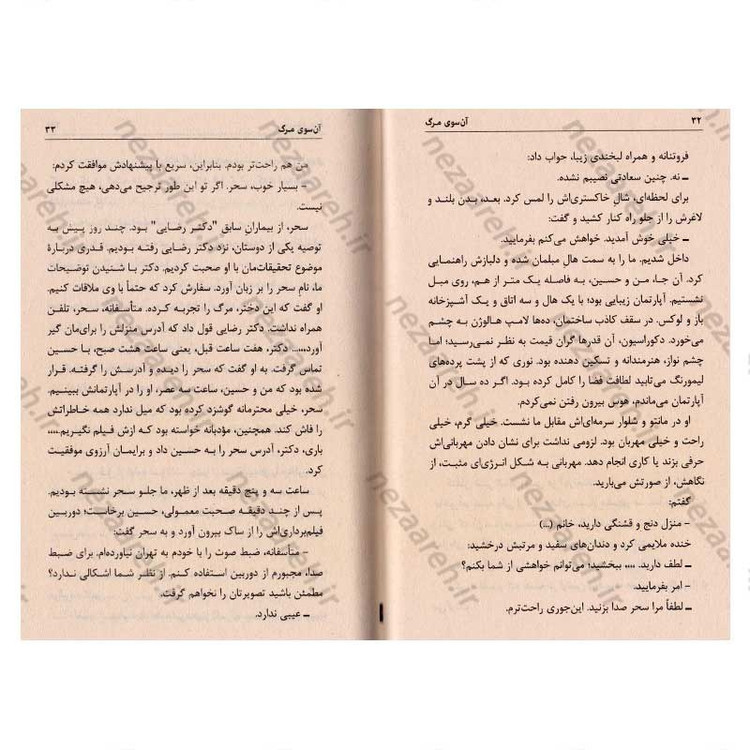 ۳۲ آن‌سوی مرگ
فروتنانه و همراه لبخندی زیبا، جواب داد:
ـ نه. چنین سعادتی نصیبم نشده.
برای لحظه‌ای، شال خاکستری‌اش را لمس کرد. بعد، بدن بلند و
لاغرش را از جلو راه کنار کشید و گفت:
ـ خیلی خوش آمدید. خواهش می‌کنم بفرمایید.
داخل شدیم. ما را به سمت هال مبلمان شده و دلبازش راهنمایی
کرد. آن جا، من و حسین، به فاصله یک متر از هم، روی مبل
نشستیم. آپارتمان زیبایی بود؛ با یک هال و سه اتاق و یک آشپزخانه
باز و لوکس. در سقف کاذب ساختمان، ده‌ها لامپ هالوژن به چشم
می‌خورد. دکوراسیون، آن قدرها گران قیمت به نظر نمی‌رسید؛ اما
چشم نواز، هنرمندانه و تسکین دهنده بود. نوری که از پشت پرده‌های
لیمورنگ می‌تابید لطافت فضا را کامل کرده بود. اگر ده سال در آن
آپارتمان می‌ماندم، هوس بیرون رفتن نمی‌کردم.
او در مانتو و شلوار سرمه‌ای‌اش مقابل ما نشست. خیلی گرم، خیلی
راحت و خیلی مهربان بود. لزومی نداشت برای نشان دادن مهربانی‌اش
حرفی بزند یا کاری انجام دهد. مهربانی به شکل انرژی‌ای مثبت، از
نگاهش، از صورتش می‌بارید.
گفتم:
- منزل دنج و قشنگی دارید، خانم (...)
خنده ملایمی کرد و دندان‌های سفید و مرتبش درخشید:
ـ لطف دارید. .... ببخشید؛ می‌توانم خواهشی از شما بکنم؟
- امر بفرمایید.
ـ لطفاً مرا سحر صدا بزنید. این‌جوری راحت‌ترم.
آن‌سوی مرگ ۳۳
من هم راحت‌تر بودم. بنابراین، سریع با پیشنهادش موافقت کردم:
- بسیار خوب، سحر. اگر تو این طور ترجیح می‌دهی، هیچ مشکلی
نیست.
سحر، از بیماران سابق "دکتر رضایی" بود. چند روز پیش به
توصیه یکی از دوستان، نزد دکتر رضایی رفته بودیم. قدری دربارهٔ
موضوع تحقیقات‌مان با او صحبت کردیم. دکتر با شنیدن توضیحات
ما، نام سحر را بر زبان آورد. سفارش کرد که حتماً با وی ملاقات کنیم.
او گفت که این دختر، مرگ را تجربه کرده. متأسفانه، سحر، تلفن
همراه نداشت. دکتر رضایی قول داد که آدرس منزلش را برای‌مان گیر
آورد.... دکتر، هفت ساعت قبل، یعنی ساعت هشت صبح، با حسین
تماس گرفت. به او گفت که سحر را دیده و آدرسش را گرفته. قرار
شده بود که من و حسین، ساعت سه عصر، او را در آپارتمانش ببینیم.
سحر، خیلی محترمانه گوشزد کرده بود که میل ندارد همه خاطراتش
را فاش کند. همچنین، مؤدبانه خواسته بود که ازش فیلم نگیریم....
باری، دکتر، آدرس سحر را به حسین داد و برایمان آرزوی موفقیت
کرد.
ساعت سه و پنج دقیقه بعد از ظهر، ما جلو سحر نشسته بودیم.
پس از چند دقیقه صحبت معمولی، حسین برخاست؛ دوربین
فیلم‌برداری‌اش را از ساک بیرون آورد و به سحر گفت:
- متأسفانه، ضبط صوت را با خودم به تهران نیاورده‌ام. برای ضبط
صدا، مجبورم از دوربین استفاده کنم. از نظر شما اشکالی ندارد؟
مطمئن باشید تصویرتان را نخواهم گرفت.
ـ عیبی ندارد.
nezaareh.ir